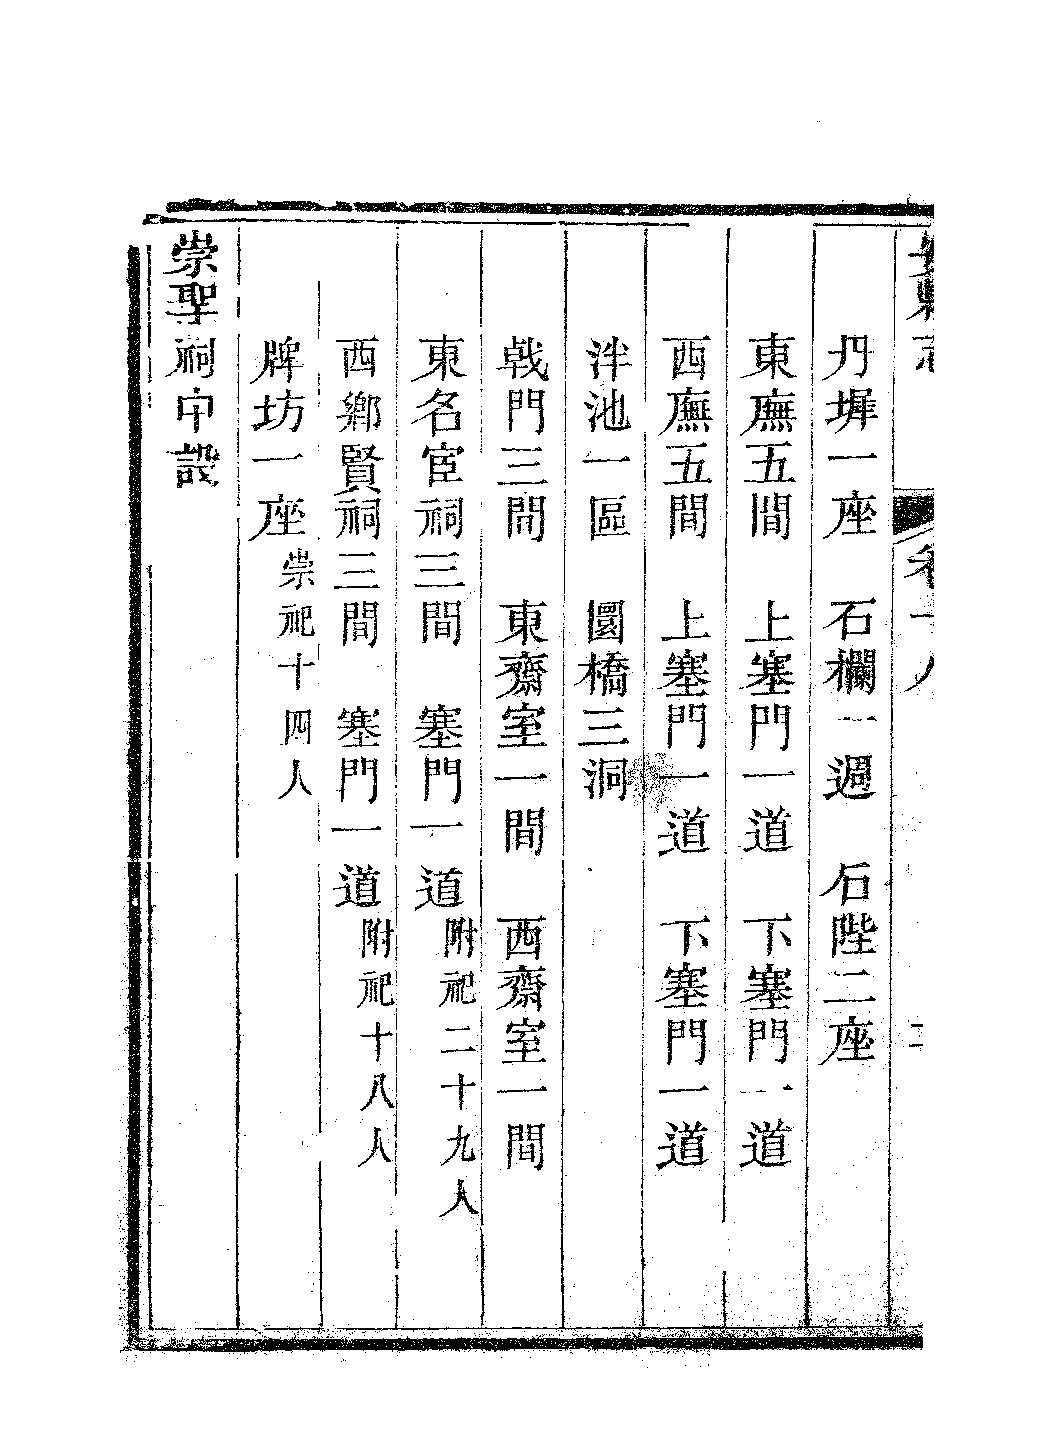 縣志 卷十八
丹墀一座 石欄一週 石陛二座
東廡五間 上塞門一道 下塞門一道
西廡五間 上塞門一道 下塞門一道
泮池一區 圜橋三洞
戟門三間 東齋室一間 西齋室一間
東名宦祠三間 塞門一道附祀二十九人
西鄉賢祠三間 塞門一道附祀十八人
牌坊一座崇祀十四人
崇聖祠中設